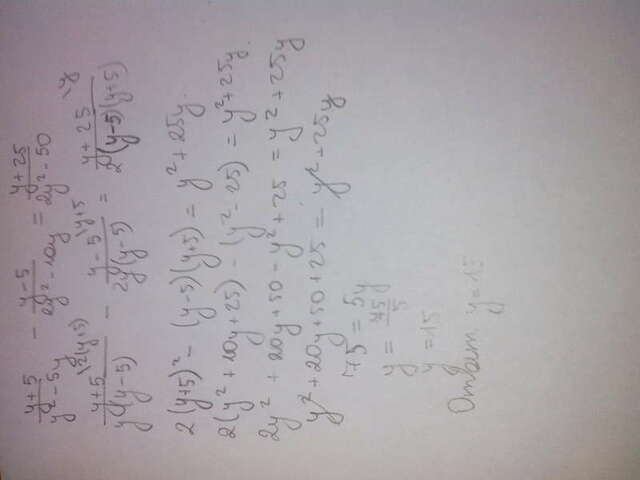 y+5/y²-5y - y-5/2y²-10y = y+25/2y²-50
y+5\2(y+5)/y(y-5) - y-5\y+5/2y(y-5) = y+25\y/2(y-5)(y+5)
2(y+5)² - (y-5)(y+5) = y²+25y.
2(y²+10y+25) - (y²-25) = y²+25y.
2y² + 20y+50 - y²+25 = y²+25y
y²+20y+50+25 = y²+25y
75 = 5y
y = 75/5
y=15
Ответ: y=15